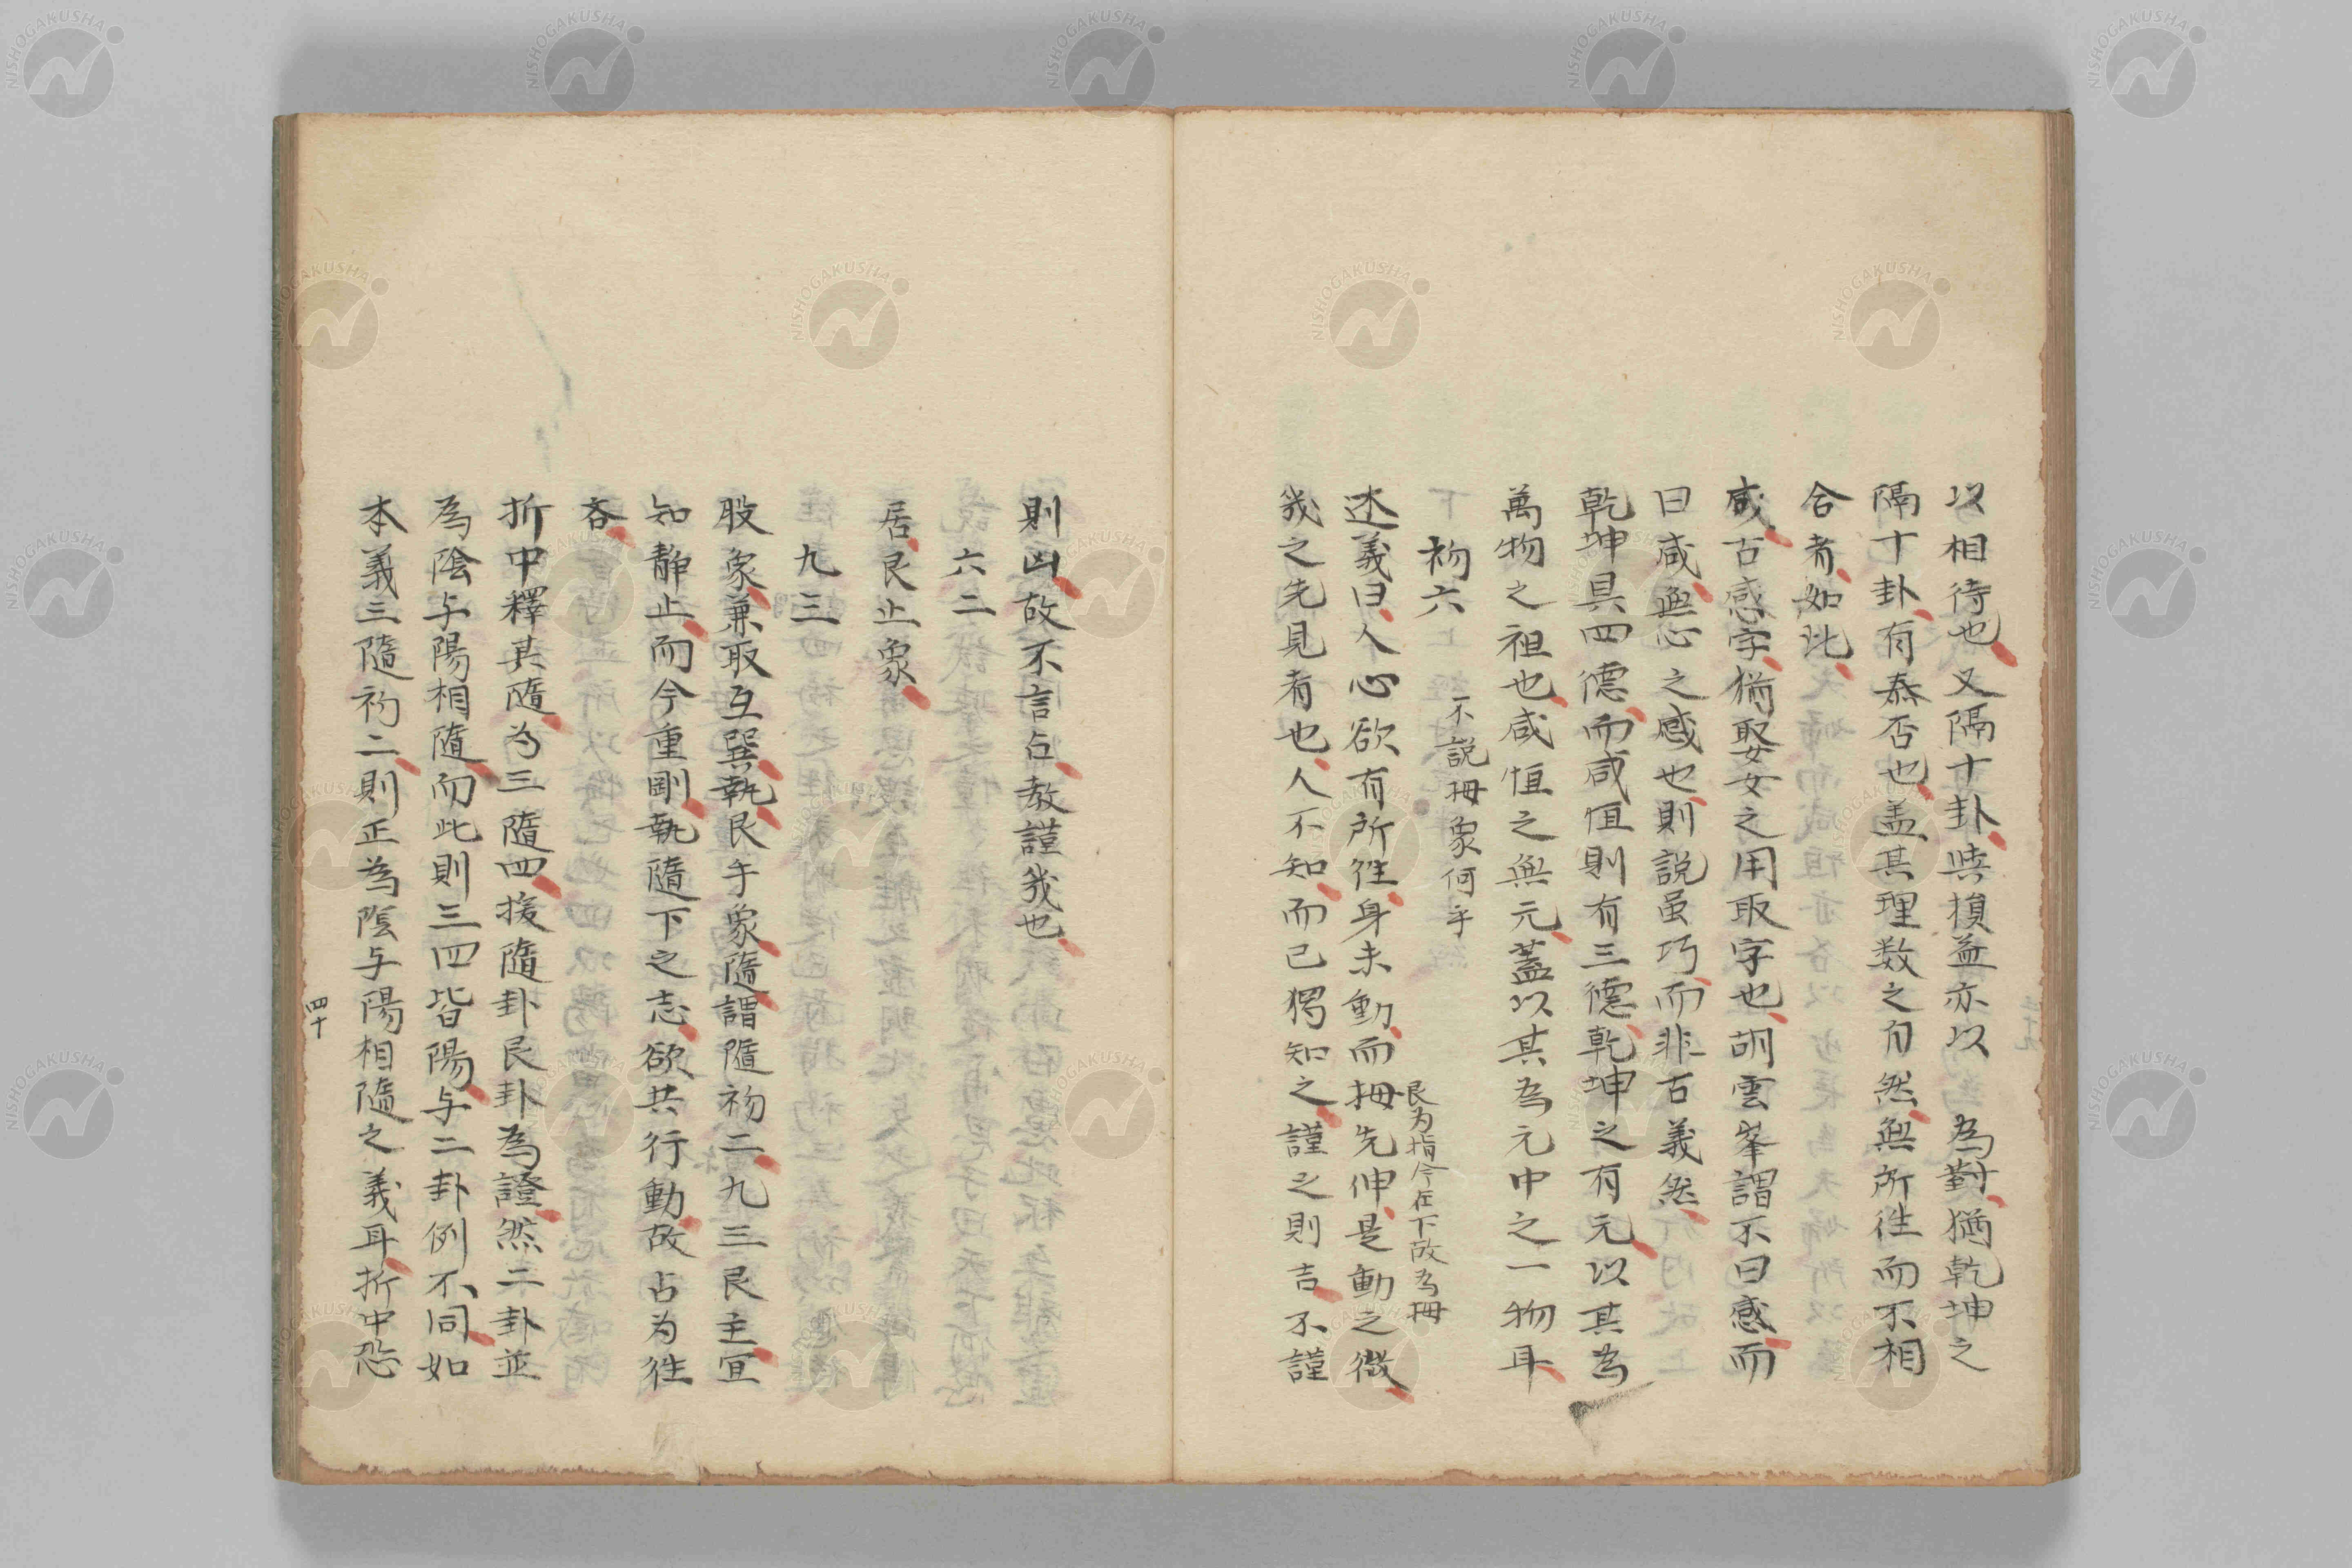 以相待也又隔十卦與損益亦以為對猶乾坤之
隔十卦有泰否也盖其理数之自然無所往而不相
合者如此
咸古感字猶娶女之用取字也胡雲峯謂不曰感而
曰咸無心之感也則説虽巧而非古義然
乾坤具四德而咸恒則有三德乾坤之有元以其為
萬物之祖也咸恒之無元蓋以其為元中之一物耳
初六
不説拇象何乎
述義曰人心欲有所往身未動而拇先伸是動之微
艮为指今在下故為拇
幾之先見者也人不知而己獨知之謹之則吉不謹
則凶故不言占教謹幾也
六二
居艮止象
九三
股象兼取互巽執艮手象隨謂隨初二九三艮主宜
知静止而今重剛執隨下之志欲共行動故占为往
吝
折中釋其隨為三隨四援隨卦艮卦為證然二卦並
為陰与陽相隨而此則三四皆陽与二卦例不同如
本義三隨初二則正為陰与陽相隨之義耳折中恐
四十
NISHOGAKUSHA